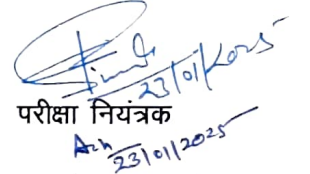 23/01/2025
परीक्षा नियंत्रक
23/01/2025